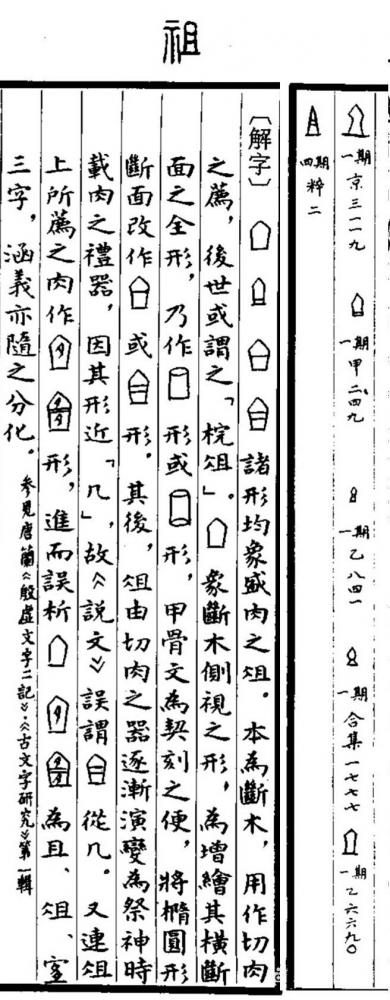 祖
一期 京三一一九 一期 甲二四九 一期 乙八四一 一期 合集一七七七 一期 乙六六九〇
四期 粹二
〔解字〕 諸形均象盛肉之俎。本為斷木,用作切肉
之薦,後世或謂之「梡俎」。 象斷木側視之形,為增繪其橫斷
面之全形,乃作 形或 形,甲骨文為契刻之便,將橢圓形
斷面改作 或 形。其後,俎由切肉之器逐漸演變為祭神時
載肉之禮器,因其形近「几」,故《說文》誤謂 從几。又連俎
上所薦之肉作 形,進而誤析 為且、俎、宜
三字,涵義亦隨之分化。參見唐蘭《殷虛文字二記》,《古文字研究》第一輯